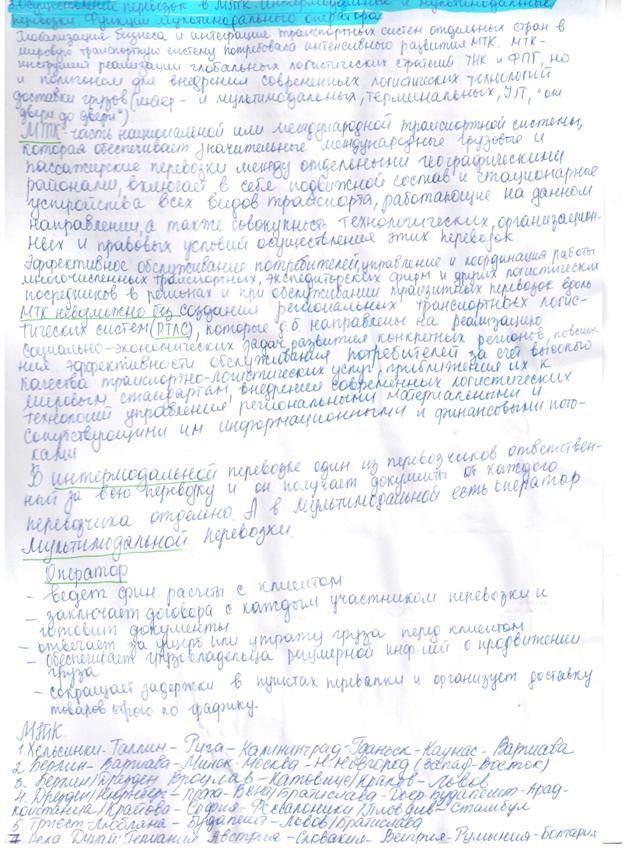 Осуществление перевозок в МТК. Интермодальные и мультимодальные
перевозки. Функции мультимодального оператора.
Глобализация бизнеса и интеграция транспортных систем отдельных стран в
мировую транспортную систему потребовала интенсивного развития МТК. МТК-
инструмент реализации глобальных логистических стратегий ТНК и ФПГ, но
и полигоном для внедрения современных логистических технологий
доставки грузов (интер- и мультимодальных, терминальных, JIT, "от
двери до двери").
МТК-часть национальной или международной транспортной системы,
которая обеспечивает значительные международные грузовые и
пассажирские перевозки между отдельными географическими
районами, включает в себе подвижной состав и стационарные
устройства всех видов транспорта, работающие на данном
направлении, а также совокупность технологических, организацион-
ных и правовых условий осуществления этих перевозок.
Эффективное обслуживание потребителей, управление и координация работы
многочисленных транспортных, экспедиторских фирм и других логистических
посредников в регионах и при обслуживании транзитных перевозок вдоль
МТК невозможно без создания региональных транспортных логис-
тических систем (РТЛС), которые д.б направлены на реализацию
социально-экономических задач, развития конкретных регионов, повыше-
ния эффективности обслуживания потребителей за счет высокого
качества транспортно-логистических услуг, приближения их к
мировым стандартам, внедрения современных логистических
технологий управления региональными материальными и
сопутствующими им информационными и финансовыми пото-
ками
В интермодальной перевозке один из перевозчиков ответствен-
ный за всю перевозку и он получает документы от каждого
перевозчика отдельно. А в мультимодальной есть оператор
мультимодальной перевозки.
Оператор
- ведет фин. расчеты с клиентом
- заключает договора с каждым участником перевозки и
готовит документы
- отвечает за ущерб или утрату груза перед клиентом
- обеспечивает грузовладельца регулярной инф-ией о продвижении
груза
- сокращает задержки в пунктах перевалки и организует доставку
товаров строго по графику.
МТК
1. Хельсинки-Таллин-Рига-Калининград-Гданьск-Каунас-Варшава
2. Берлин-Варшава-Минск-Москва-Н.Новгород (Запад-Восток)
3. Берлин/Дрезден-Вроцлав-Катовице/Краков-Львов
4. Дрезден/Нюрнберг-Прага-Вена/Братислава-Будапешт-Арад-
Констанца/Крайова-София-Фессалоники/Пловдив-Стамбул
5. Триест-Любляна-Будапешт-Львов/Братислава
7. Река Дунай: Германия-Австрия-Словакия-Венгрия-Румыния-Болгария